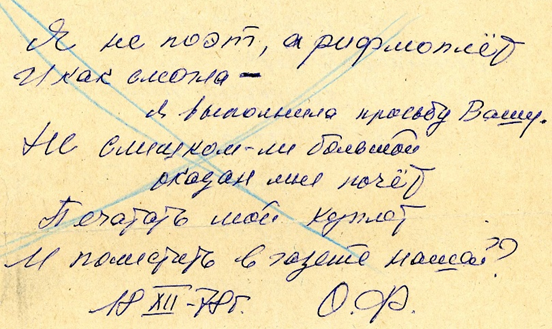 Я не поэт, а рифмоплёт
И как смогла –
я выполнила просьбу Вашу.
Не слишком-ли большой
оказан мне почёт
Печатать мой куплет
И поместить в газете нашей?
18 XII-78г. О.Ф.